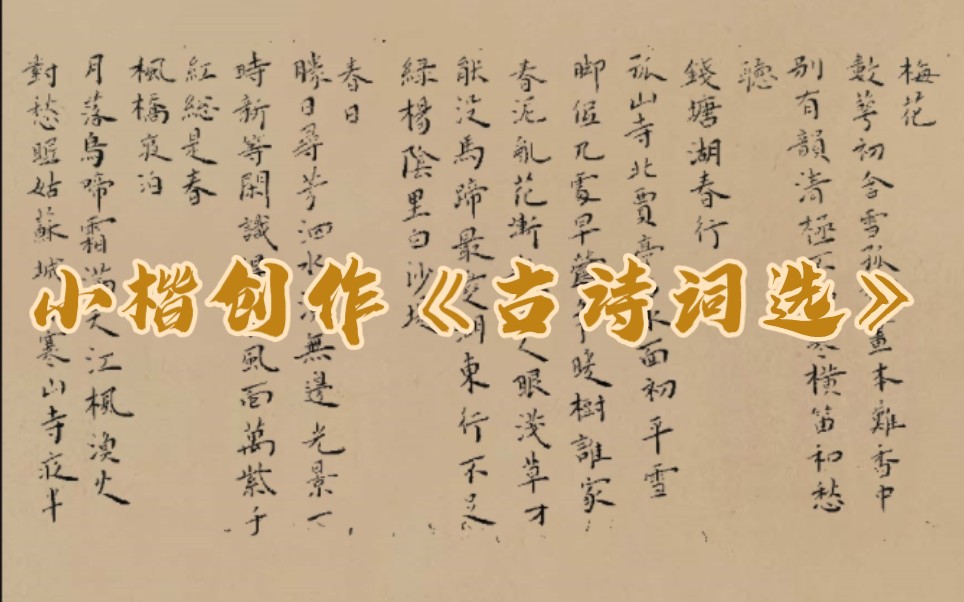 梅花
數萼初含雪孤畫本難香中
別有韻清極不寒橫笛初愁
聽
錢塘湖春行
孤山寺北賈亭水面初平雪
腳低几處早鶯爭暖樹誰家
春泥亂花漸人眼淺草才
能沒馬蹄最愛湖東行不足
綠楊陰里白沙堤
春日
勝日尋芳泗水無邊光景一
時新等閑識得風面萬紫千
紅總是春
楓橋夜泊
月落烏啼霜滿天江楓漁火
對愁眠姑蘇城寒山寺夜半
小楷创作《古诗词选》